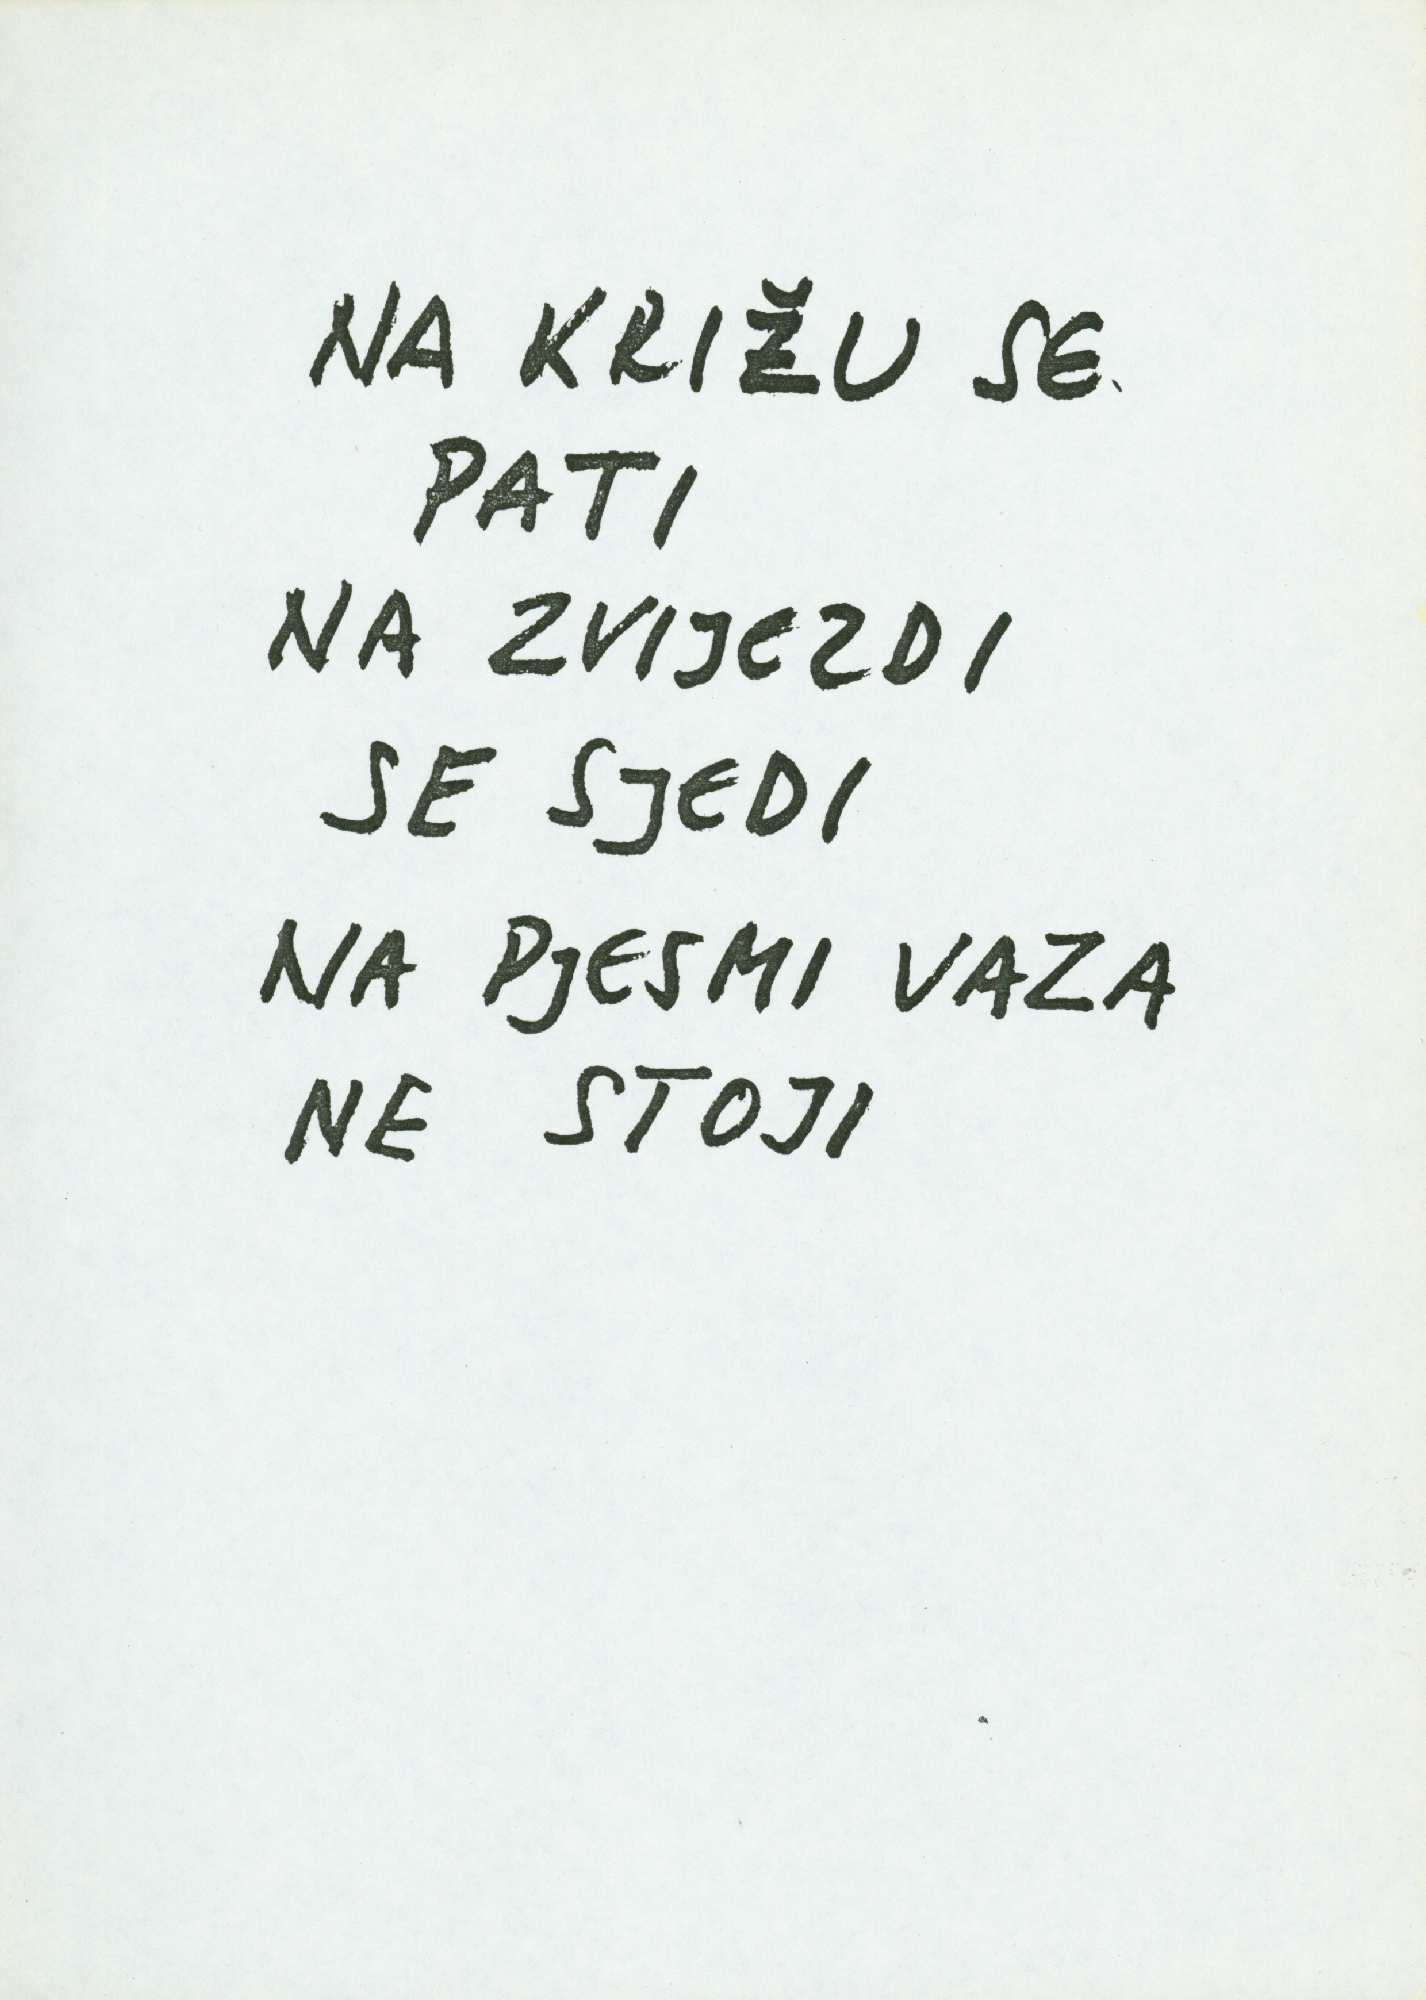 NA KRIŽU SE
PATI
NA ZVIJEZDI
SE SJEDI
NA PJESMI VAZA
NE STOJI